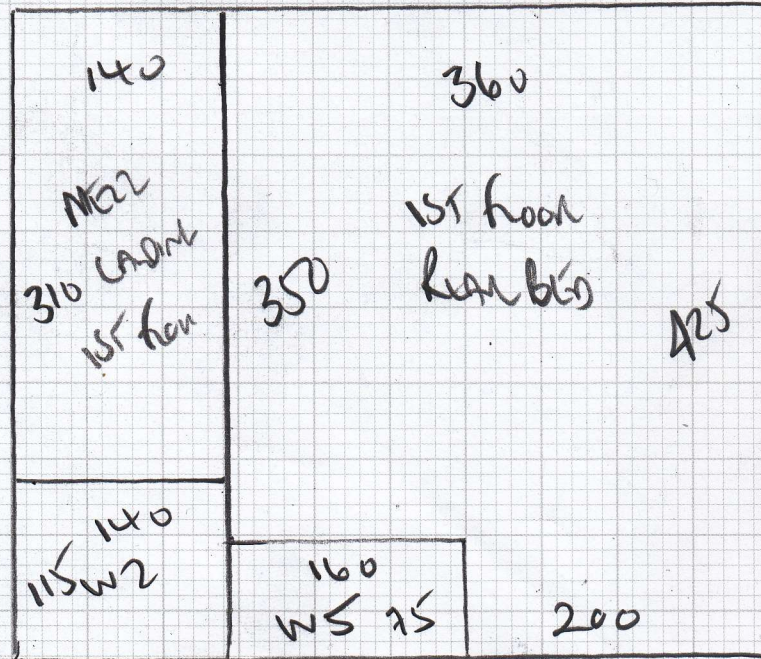 140
MEZZ
310 LADING
1ST floor
140
115 W2
360
1ST floor
REAR BED
350
425
160
W5 75
200